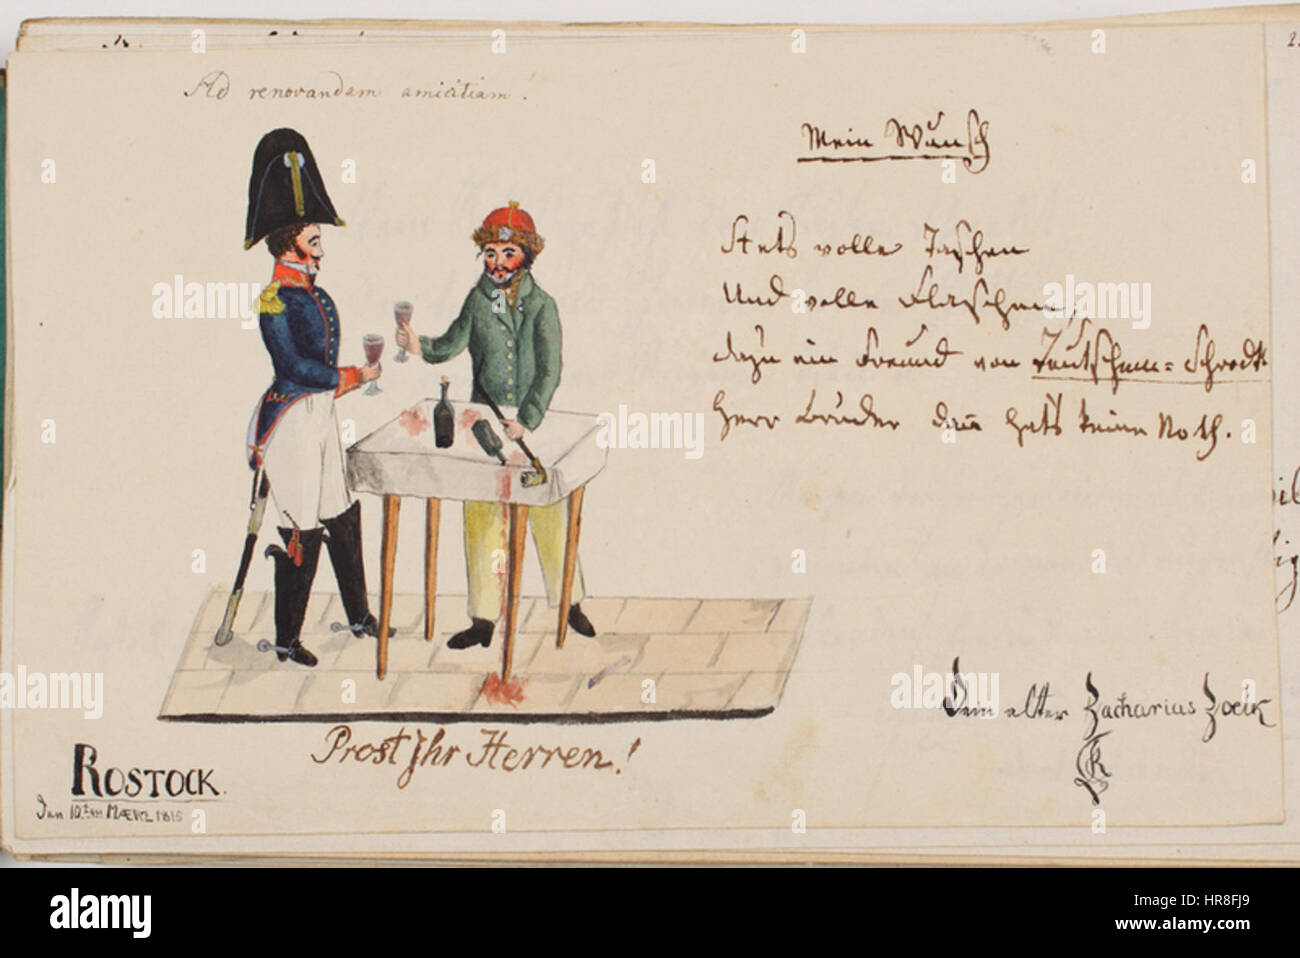 Ad renovandam amicitiam!
Mein Wunsch
Stets volle Taschen
Und volle Flaschen,
dazu ein Freund von Teutschem=Schrot
Herr Bruder dann hat's keine Noth.
Dein alter Zacharius Zoeik
Prost Ihr Herren!
ROSTOCK.
Den 10ten MÆRZ 1815
alamy
Image ID: HR8FJ9
www.alamy.com